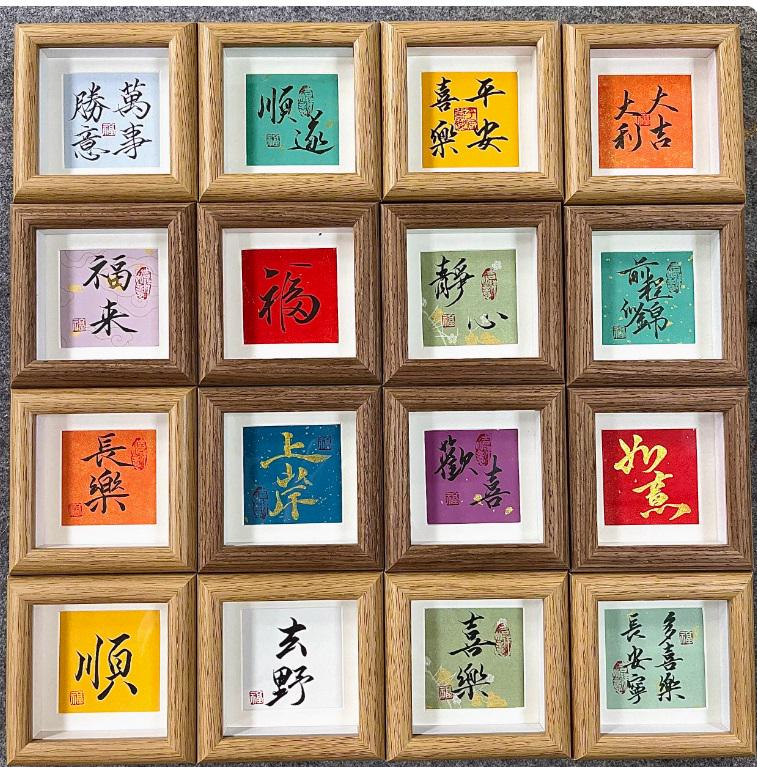 萬事
勝意
順遂
平安
喜樂
大吉
大利
福来
福
靜心
前程似錦
長樂
上岸
歡喜
如意
順
去野
喜樂
多喜樂
長安寧